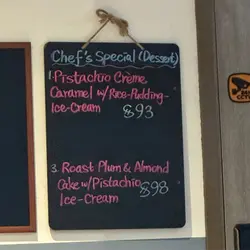 Chef's Special (Dessert)
1. Pistachio Crème
Caramel w/ Rice-Pudding-
Ice-Cream $93
3. Roast Plum & Almond
Cake w/ Pistachio
Ice-Cream $98